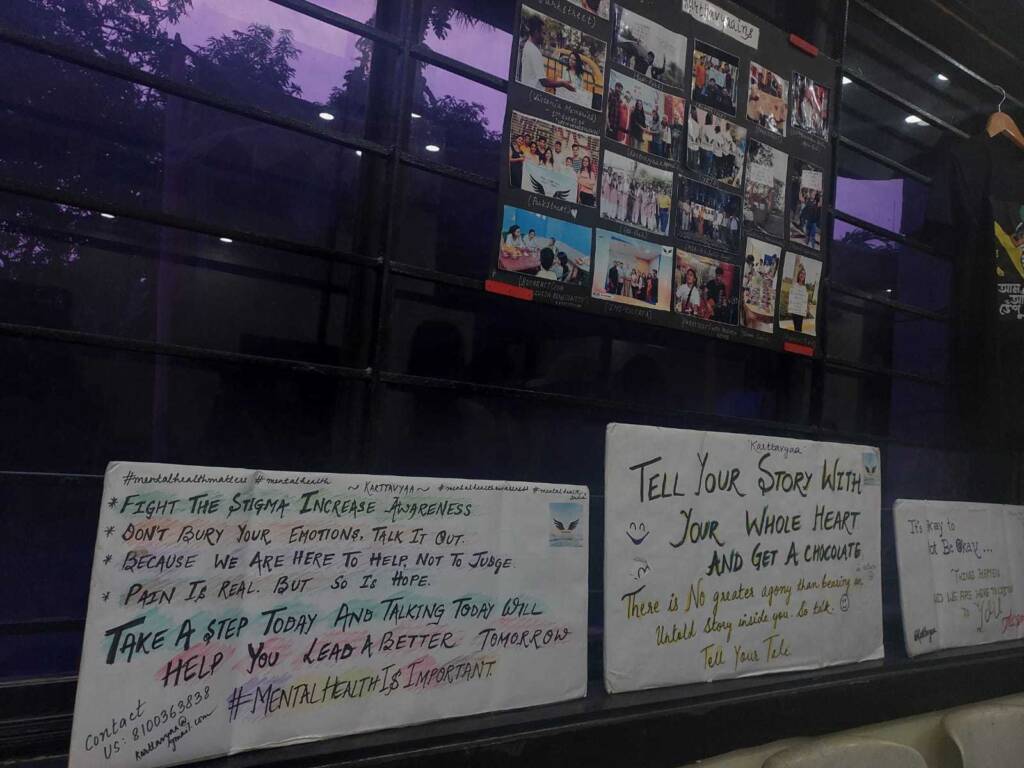 (Parkstreet)
(Victoria Memorial)
(Parkstreet)
#mentalhealthmatters #mentalhealth ~ KARTTAVYAA ~ #mentalhealthawareness #mentalhealth
* FIGHT THE STIGMA INCREASE AWARENESS
* DON'T BURY YOUR EMOTIONS, TALK IT OUT.
* BECAUSE WE ARE HERE TO HELP, NOT TO JUDGE.
* PAIN IS REAL. BUT SO IS HOPE.
TAKE A STEP TODAY AND TALKING TODAY WILL
HELP YOU LEAD A BETTER TOMORROW
#MENTALHEALTHISIMPORTANT.
Contact
US: 8100363838
karttavyaa@
gmail.com
Karttavyaa
TELL YOUR STORY WITH
YOUR WHOLE HEART
AND GET A CHOCOLATE
in return
There is No greater agony than bearing an
Untold Story inside you. So talk.
Tell Your Tale
It's Okay to
Not Be Okay...
THINGS HAPPEN
AND WE ARE HERE TO LISTEN
TO YOU